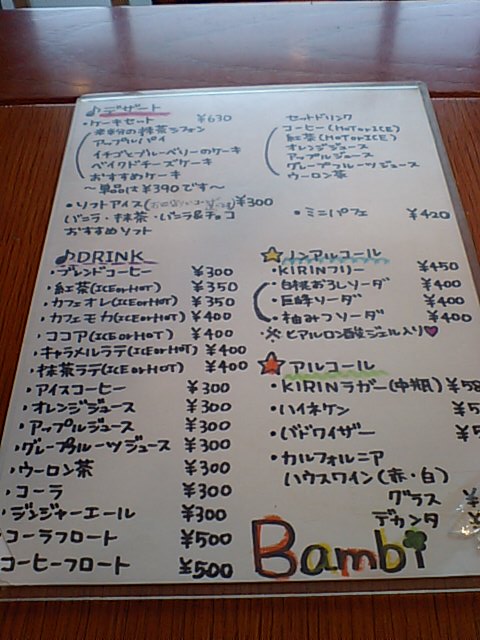 ♪デザート
・ケーキセット ¥630
の抹茶シフォン
アップルパイ
イチゴとブルーベリーのケーキ
ベイクドチーズケーキ
おすすめケーキ
～単品は¥390です～
セットドリンク
コーヒー(HOT or ICE)
紅茶(HOT or ICE)
オレンジジュース
アップルジュース
グレープフルーツジュース
ウーロン茶
・ソフトアイス ¥300
バニラ・抹茶・バニラ&チョコ
おすすめソフト
・ミニパフェ ¥420
♪DRINK
・ブレンドコーヒー ¥300
・紅茶(ICE or HOT) ¥350
・カフェオレ(ICE or HOT) ¥350
・カフェモカ(ICE or HOT) ¥400
・ココア(ICE or HOT) ¥400
・キャラメルラテ(ICE or HOT) ¥400
・抹茶ラテ(ICE or HOT) ¥400
・アイスコーヒー ¥300
・オレンジジュース ¥300
・アップルジュース ¥300
・グレープフルーツジュース ¥300
・ウーロン茶 ¥300
・コーラ ¥300
・ジンジャーエール ¥300
コーラフロート ¥500
コーヒーフロート ¥500
☆ノンアルコール
・KIRINフリー ¥450
・白桃おろしソーダ ¥400
・巨峰ソーダ ¥400
・柚みつソーダ ¥400
※ヒアルロン酸ジェル入り♥
★アルコール
・KIRINラガー(中瓶) ¥58
・ハイネケン ¥5
・バドワイザー ¥5
・カルフォルニア
ハウスワイン(赤・白)
グラス ¥
デカンタ ¥
Bambi